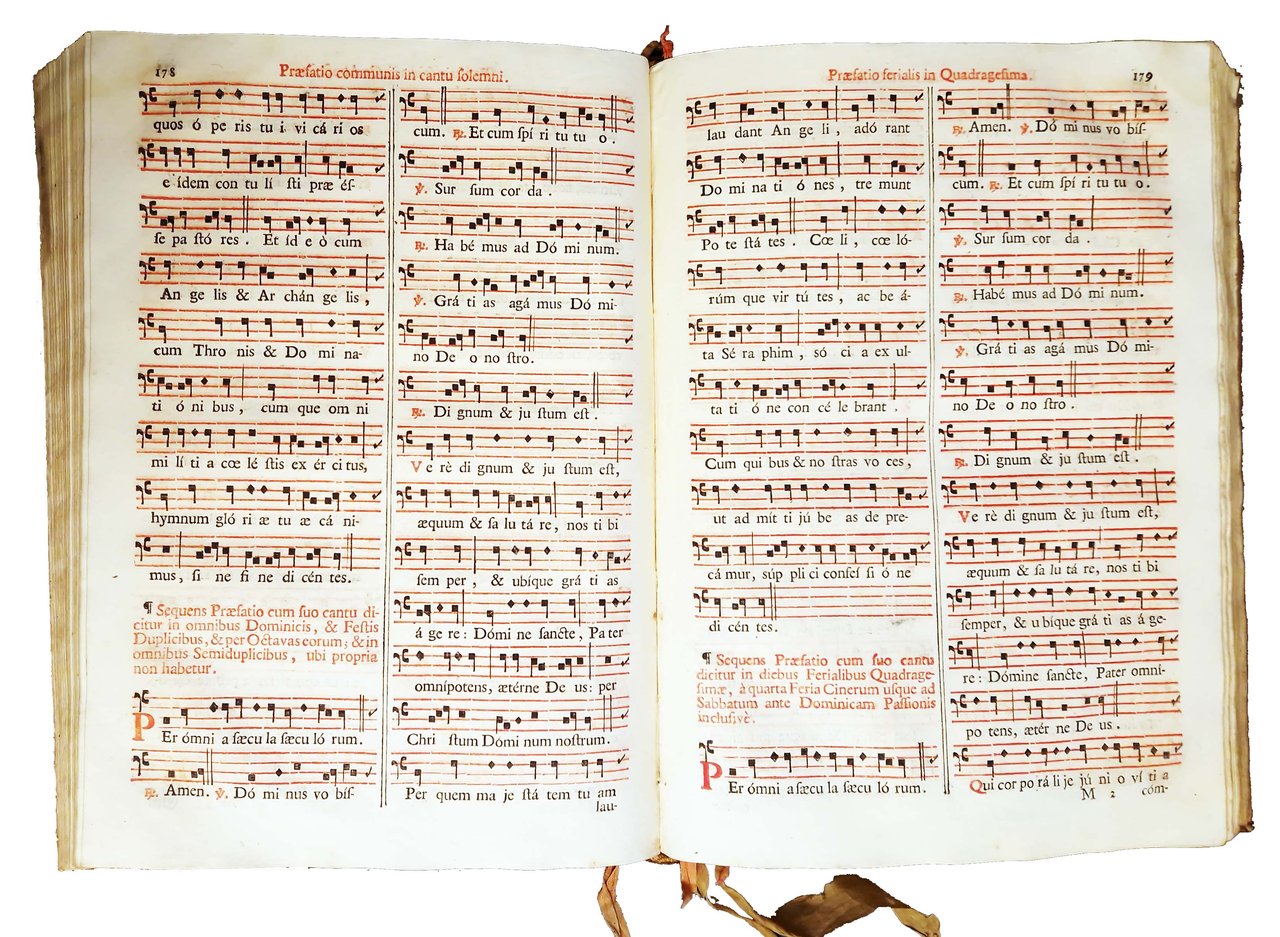 178
Præfatio communis in cantu ſolemni.
quos ó pe ris tu i vi cá ri os
e ſdem con tu lí ſti præ éſ-
ſe pa ſtó res . Et id e ò cum
An ge lis & Ar chán ge lis ,
cum Thro nis & Do mi na-
ti ó ni bus , cum que om ni
mi lí ti a cœ lé ſtis ex ér ci tus,
hymnum gló ri æ tu æ cá ni-
mus, ſi ne fi ne di cén tes.
¶ Sequens Præfatio cum ſuo cantu di-
citur in omnibus Dominicis, & Feſtis
Duplicibus, & per Octavas eorum; & in
omnibus Semiduplicibus, ubi propria
non habetur.
PEr ómni a ſæcu la ſæcu ló rum.
℟. Amen. ℣. Dó mi nus vo biſ-
cum. ℟. Et cum ſpí ri tu tu o .
℣. Sur ſum cor da .
℟. Ha bé mus ad Dó mi num.
℣. Grá ti as agá mus Dó mi-
no De o no ſtro.
℟. Di gnum & ju ſtum eſt .
Ve rè di gnum & ju ſtum eſt,
æquum & ſa lu tá re, nos ti bi
ſem per , & ubíque grá ti as
á ge re : Dómi ne ſancte, Pa ter
omnípotens, ætérne De us: per
Chri ſtum Dómi num noſtrum.
Per quem ma je ſtá tem tu am
lau-
Præfatio ferialis in Quadrageſima.
179
lau dant An ge li , adó rant
Do mi na ti ó nes , tre munt
Po te ſtá tes . Cœ li , cœ ló-
rúm que vir tú tes , ac be á-
ta Sé ra phim , só ci a ex ul-
ta ti ó ne con cé le brant .
Cum qui bus & no ſtras vo ces,
ut ad mít ti jú be as de pre-
cá mur, súp pli ci confeſ ſi ó ne
di cén tes.
¶ Sequens Præfatio cum ſuo cantu
dicitur in diebus Ferialibus Quadrage-
ſimæ, à quarta Feria Cinerum uſque ad
Sabbatum ante Dominicam Paſſionis
incluſivè.
PEr ómni a ſæcu la ſæcu ló rum.
℟. Amen. ℣. Dó mi nus vo biſ-
cum. ℟. Et cum ſpí ri tu tu o.
℣. Sur ſum cor da .
℟. Habé mus ad Dó mi num.
℣. Grá ti as agá mus Dó mi-
no De o no ſtro .
℟. Di gnum & ju ſtum eſt .
Ve rè di gnum & ju ſtum eſt,
æquum & ſa lu tá re, nos ti bi
ſemper, & u bique grá ti as á ge-
re : Dómine ſancte, Pater omni-
po tens, ætér ne De us .
Qui cor po rá li je jú ni o ví ti a
M 2
cóm-